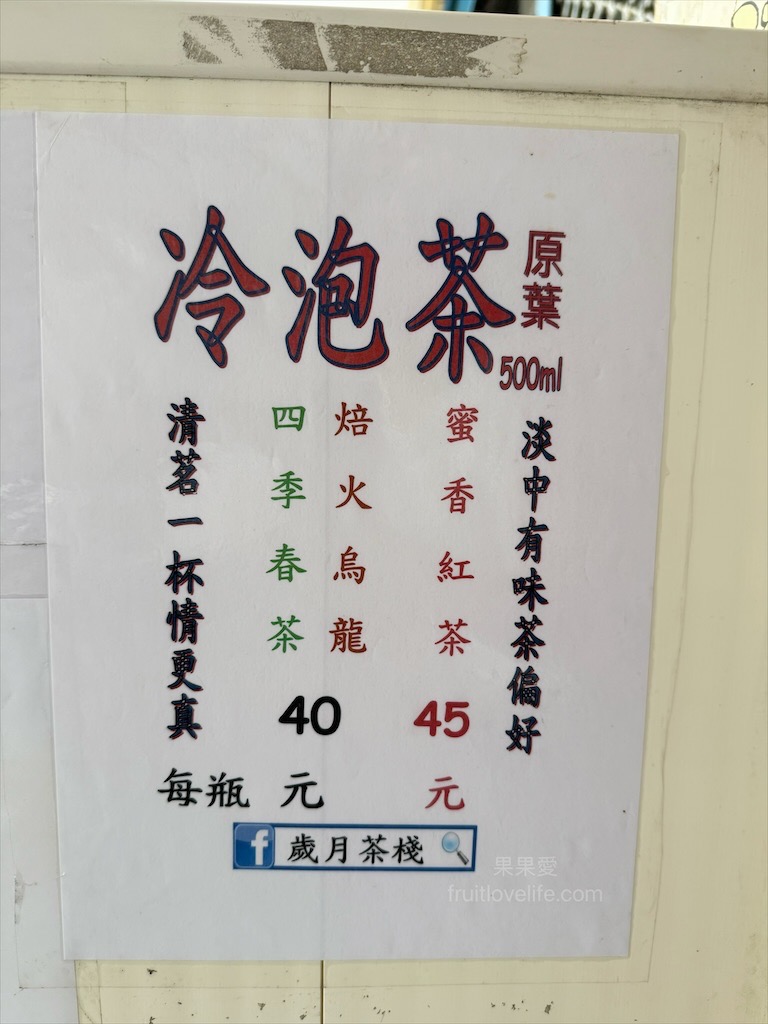 冷泡茶
原葉
500ml
淡中有味茶偏好
蜜香紅茶
45
元
焙火烏龍
四季春茶
40
元
每瓶
清茗一杯情更真
歲月茶棧
果果愛
fruitlovelife.com